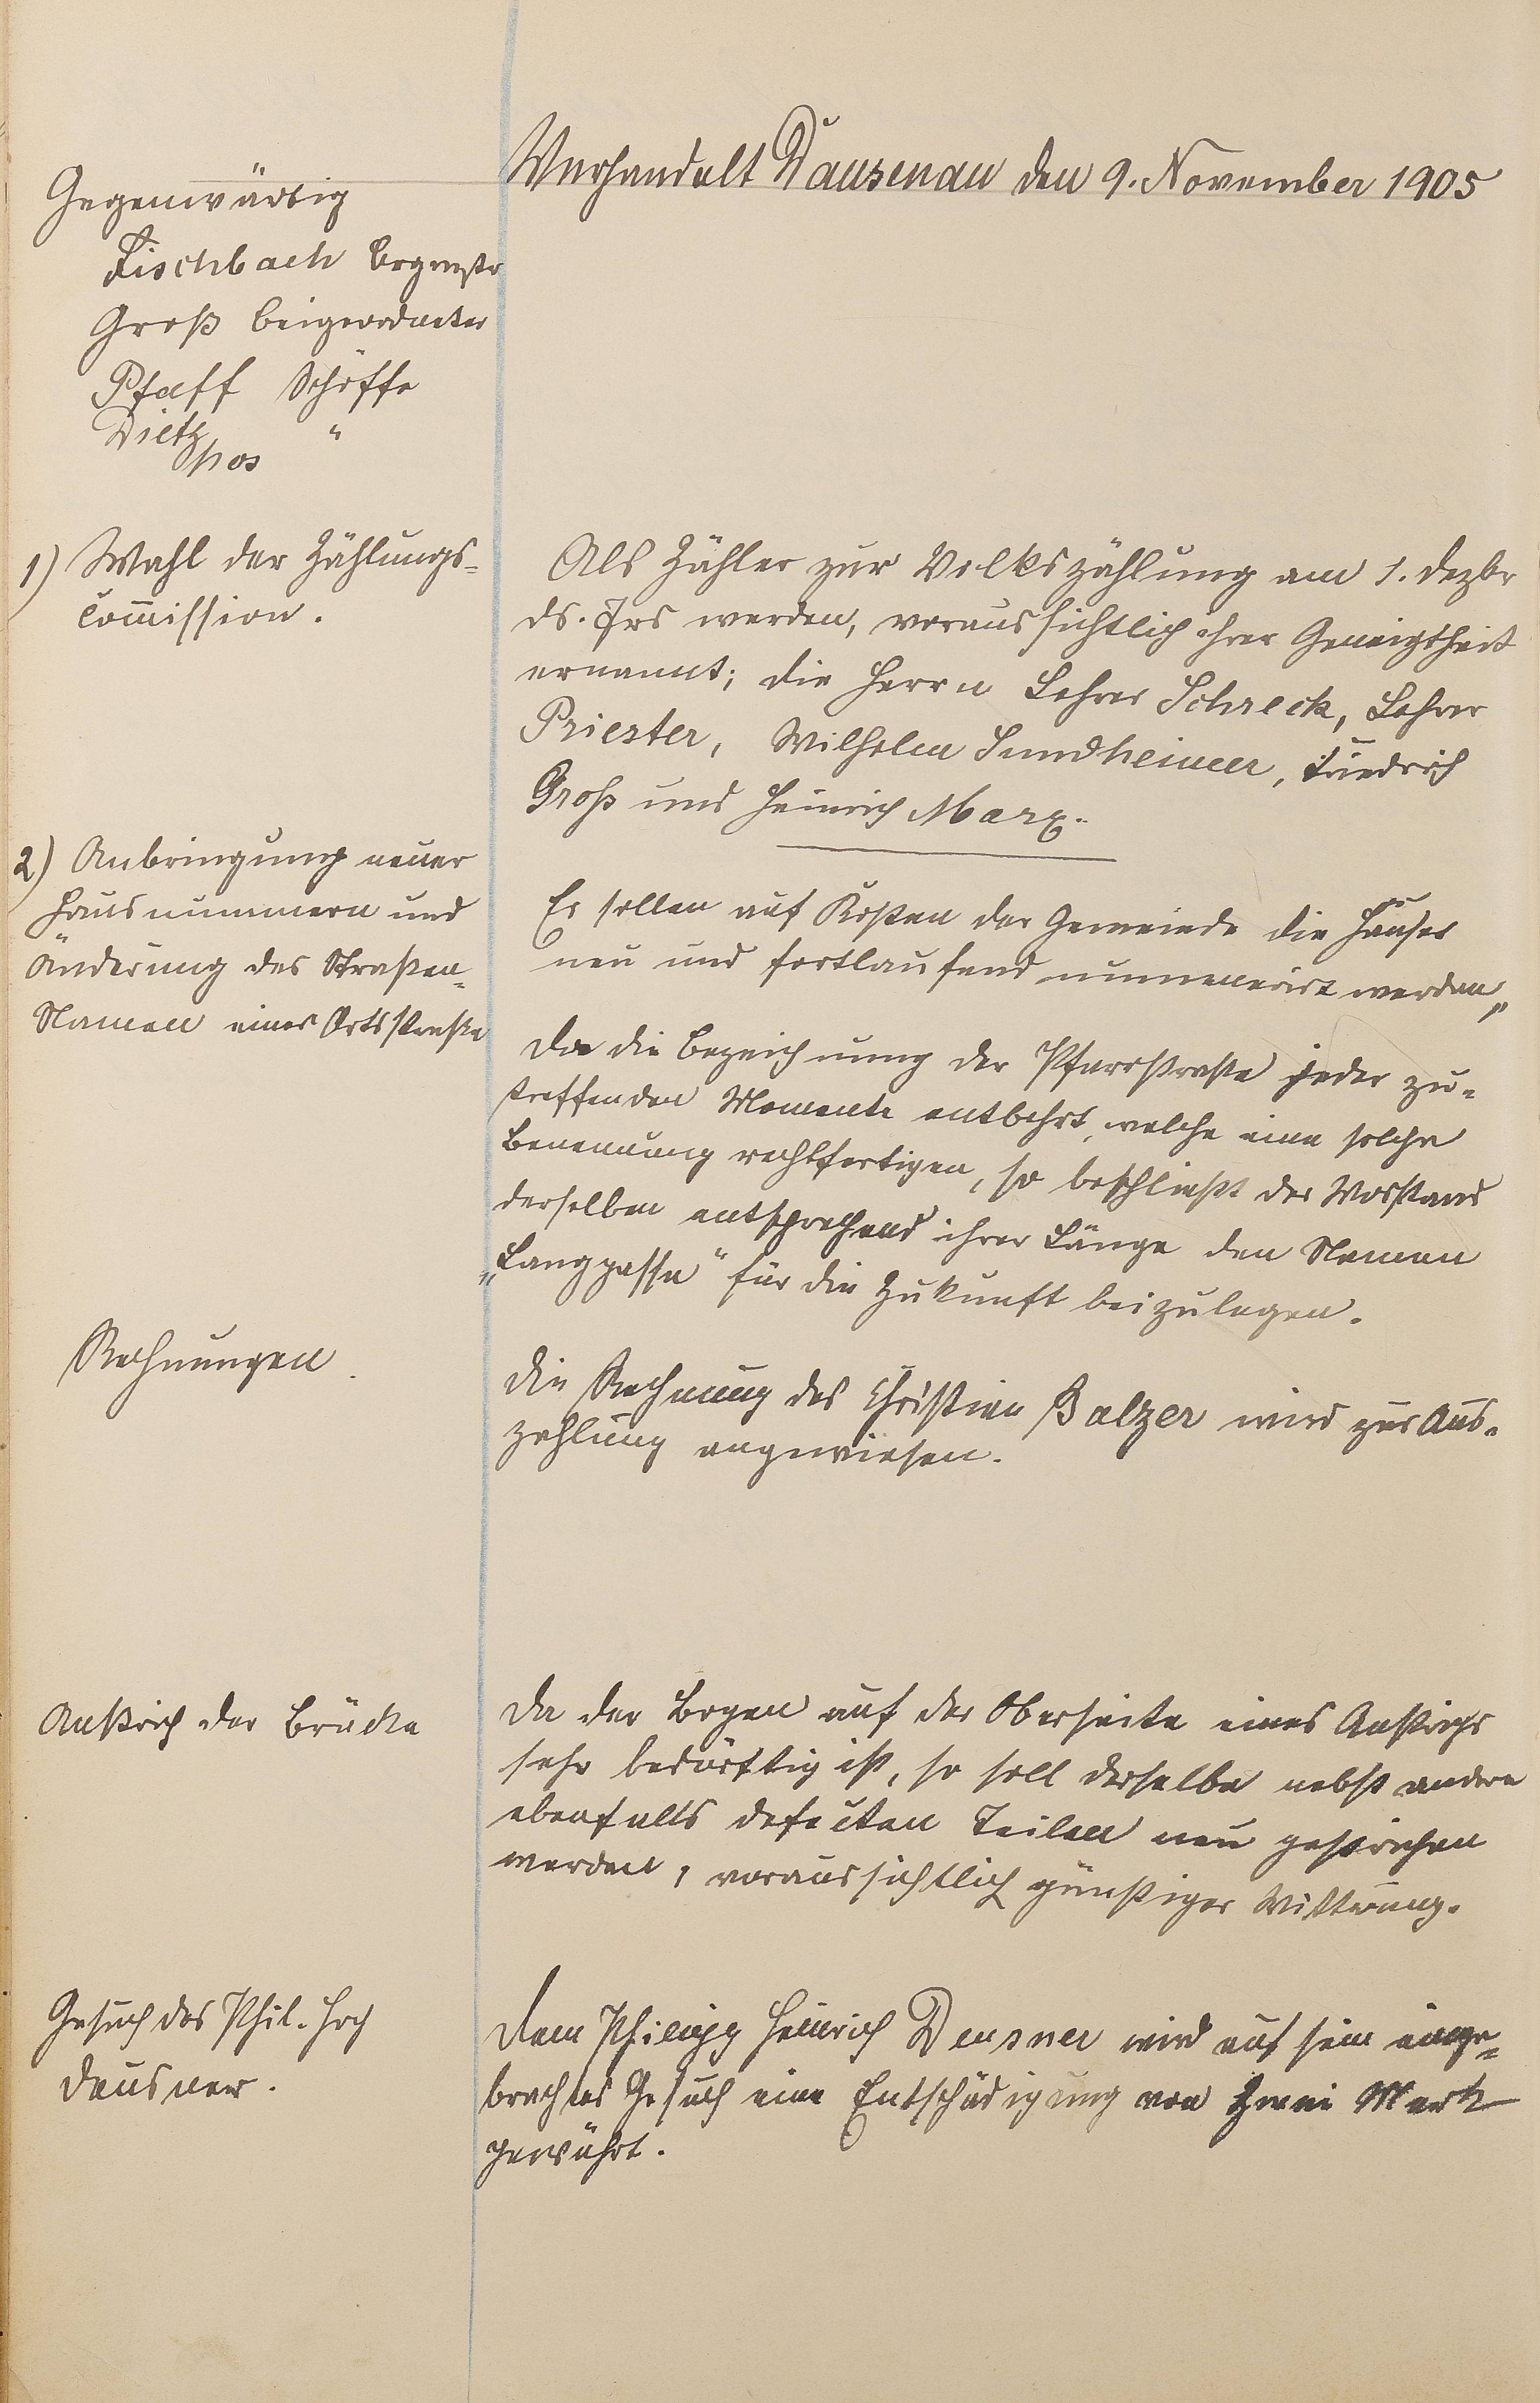 Verhandelt Dausenau den 9. November 1905
Gegenwärtig
Fischbach Brgmstr
Groß Beigeordneter
Pfaff Schöffe
Dietz "
1) Wahl der Zählungs-
Commission.
Als Zähler zur Volkszählung am 1. Dezbr
ds. Jrs werden, voraussichtlich ihrer Geneigtheit
ernannt; die Herrn Lehrer Schreck, Lehrer
Priester, Wilhelm Sundheimer, Friedrich
Groß und Heinrich Marx.
2) Anbringung neuer
Hausnummern und
Änderung des Straßen-
Namen einer Ortsstraße
Es sollen auf Kosten der Gemeinde die Häuser
neu und fortlaufend nummerirt werden,
Da die Bezeichnung der Pfarrstraße jeder zu-
treffenden Momente entbehrt, welche eine solche
Benennung rechtfertigen, so beschließt der Vorstand
derselben entsprechend ihrer Länge den Namen
„Langgasse" für die Zukunft beizulegen.
Rechnungen.
Die Rechnung des Christian Balzer wird zur Aus-
zahlung angewiesen.
Anstrich der Brücke
Da der Bogen auf der Oberseite eines Anstrichs
sehr bedürftig ist, so soll derselbe nebst andern
ebenfalls defecten Teilen neu gestrichen
werden, voraussichtlich günstiger Witterung.
Gesuch des Phil. Hch
Deusner.
Dem Philipp Heinrich Deusner wird auf sein einge-
brachtes Gesuch eine Entschädigung von Zwei Mark
gewährt.